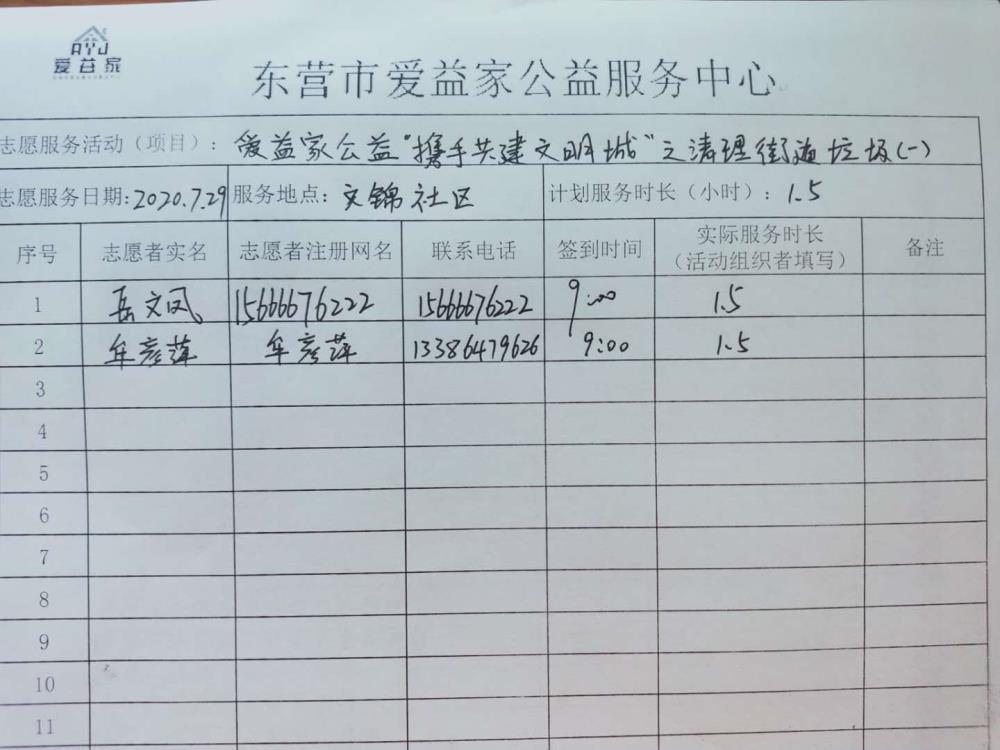 AYJ
爱益家
东营市爱益家公益服务中心
志愿服务活动（项目）：爱益家公益“携手共建文明城”之清理街道垃圾(一)
志愿服务日期:2020.7.29 服务地点：文锦社区 计划服务时长（小时）：1.5
序号 志愿者实名 志愿者注册网名 联系电话 签到时间 实际服务时长（活动组织者填写） 备注
1 岳文凤 15666676222 15666676222 9:00 1.5
2 牟彦萍 牟彦萍 13386479626 9:00 1.5
3
4
5
6
7
8
9
10
11